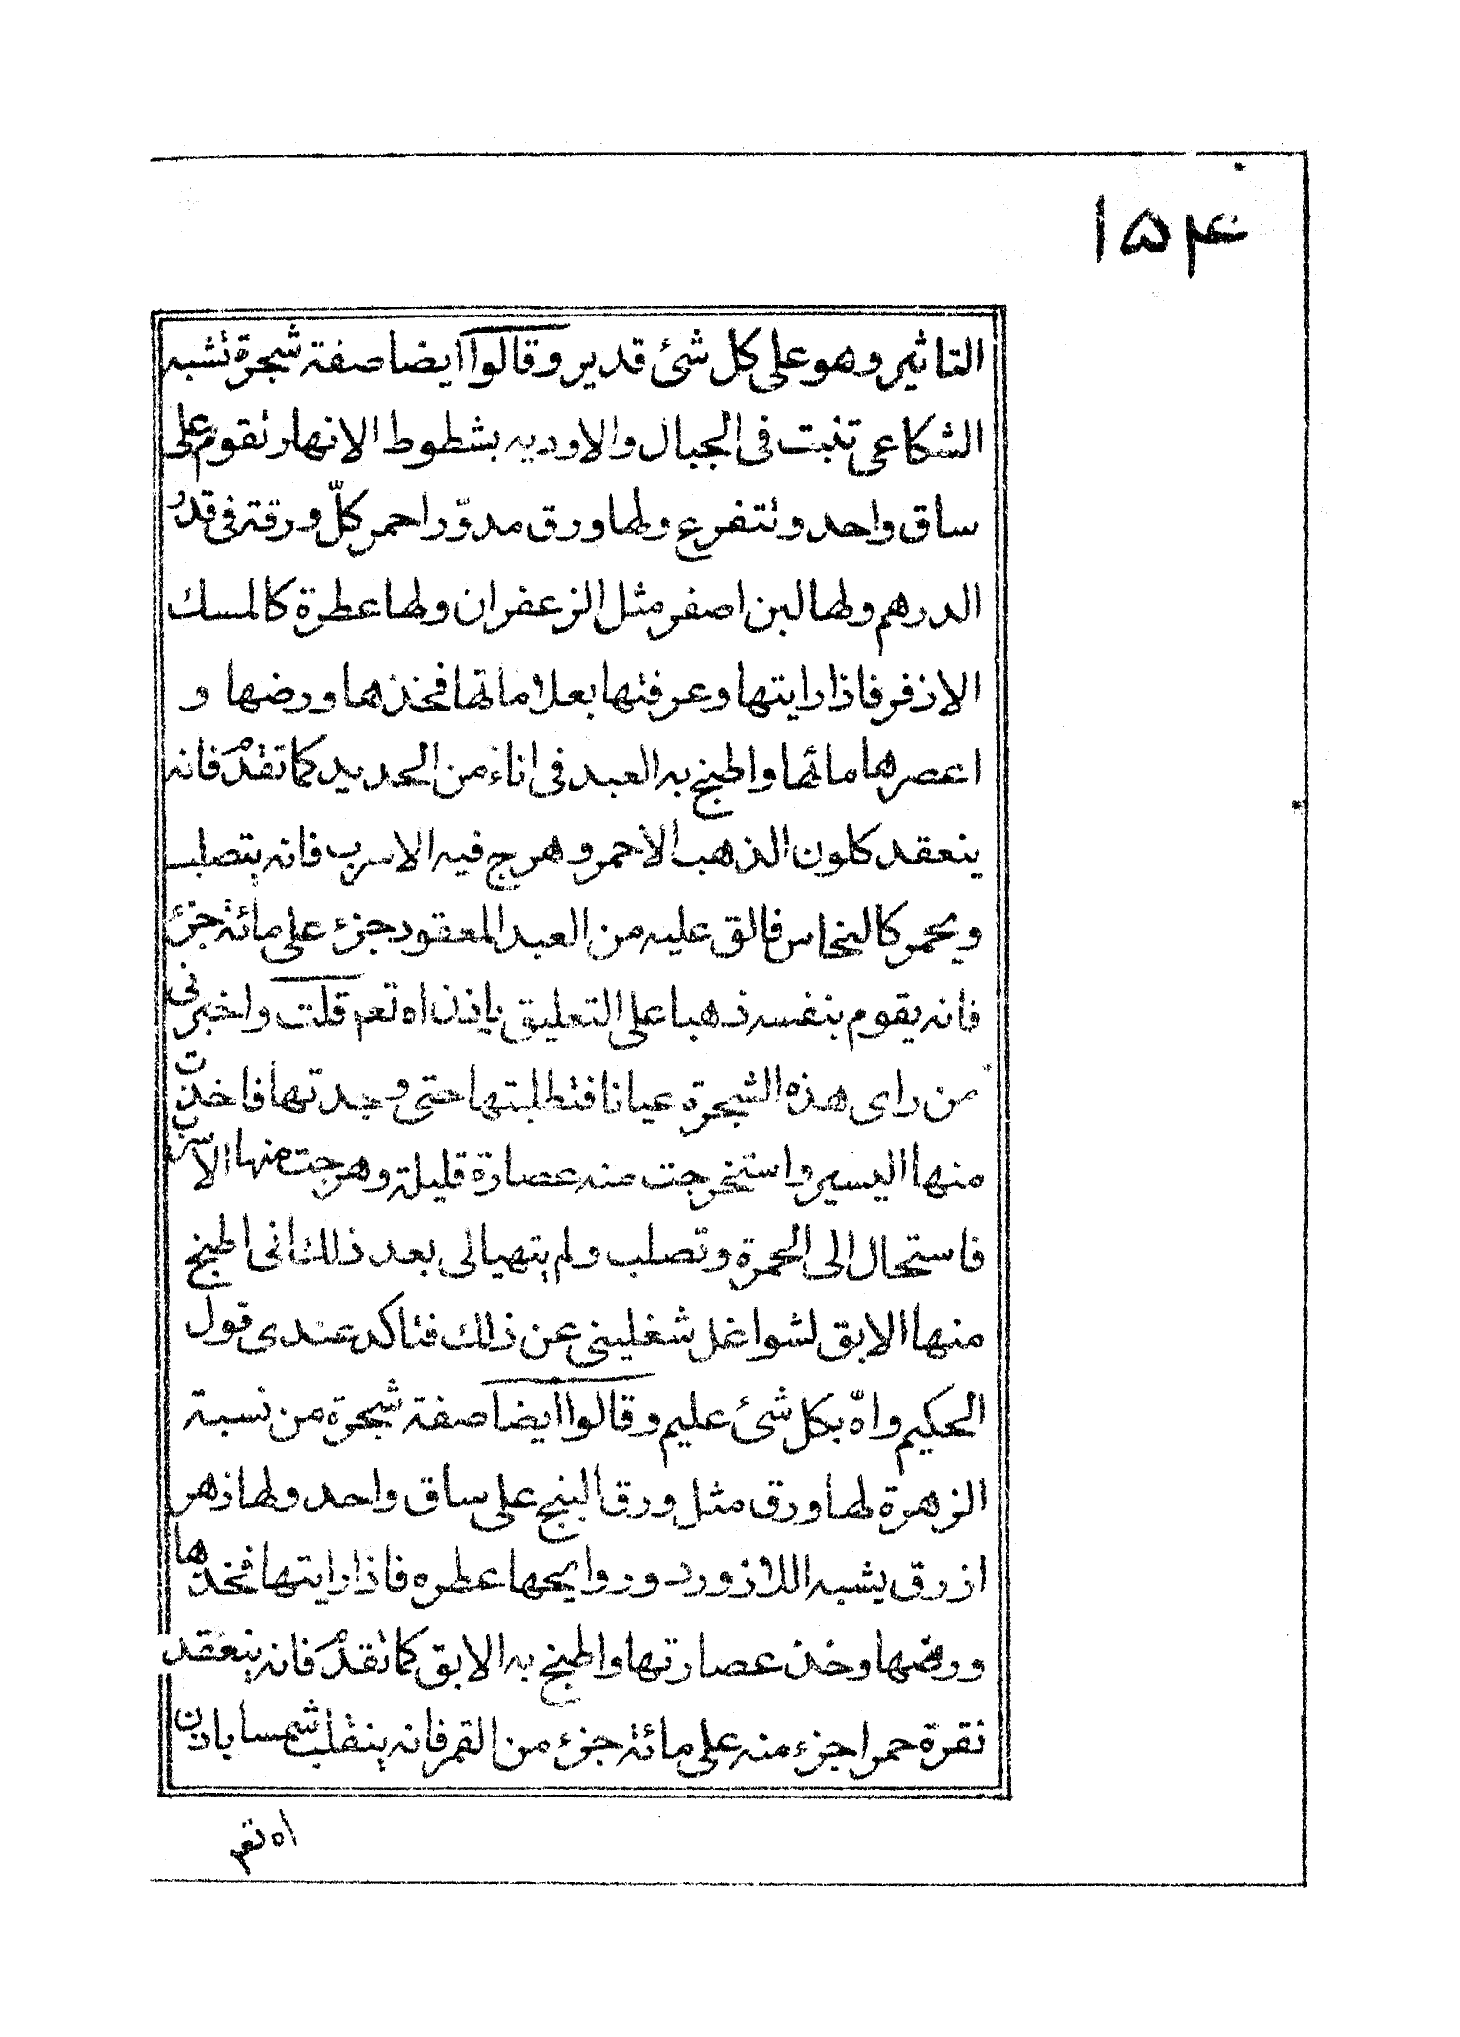 ۱۵۴
التاثير وهو على كل شئ قدير وقالوا ايضا صفة شجرة تشبه
الشكاعى تنبت فى الجبال والاوديه بشطوط الانهار تقوم على
ساق واحد وتتفرع ولها ورق مدوّر احمر كلّ ورقة فى قدر
الدرهم ولها لبن اصفر مثل الزعفران ولها عطرة كالمسك
الاذفر فاذا رايتها وعرفتها بعلاماتها فخذها ورضها و
اعصرها مائها واطبخ به العبد فى اناء من الحديد كما تقدم فانه
ينعقد كلون الذهب الاحمر وهرج فيه الاسرب فانه يتصلب
ويحمر كالنحاس فالق عليه من العبد المعقود جزء على مائة جزء
فانه يقوم بنفسه ذهبا على التعليق باذن اه تعم قلت واخبرنى
من راى هذه الشجرة عيانا فتطلبتها حتى وجدتها فاخذت
منها اليسير واستخرجت منه عصارة قليلة وهرجت منها الاسرب
فاستحال الى الحمرة وتصلب ولم يتهيالى بعد ذلك انى اطبخ
منها الابق لشواغل شغليني عن ذلك فتاكد عندى قول
الحكيم واه بكل شئ عليم وقالوا ايضا صفة شجرة من نسبة
الزهرة لها ورق مثل ورق البنج على ساق واحد ولها زهر
ازرق يشبه اللازورد وروايحها عطره فاذا رايتها فخذها
ورضها وخذ عصارتها واطبخ به الابق كما تقدم فانه ينعقد
نقرة حمرا جزء منه على مائة جزء من القمر فانه ينقلب شمسا باذن
اه تعم